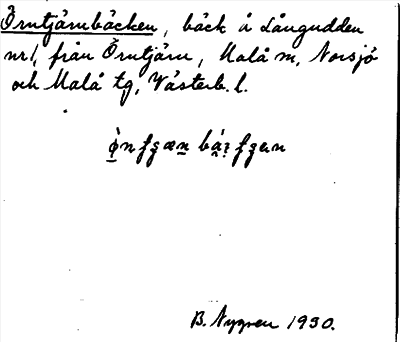 Örntjärnbäcken, bäck å Långudden
nr 1, från Örntjärn, Malå m, Norsjö
och Malå tg, Västerb. l.
B. Nygren 1930.